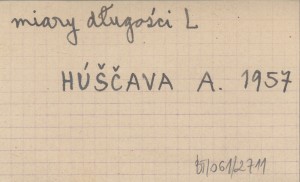 miary długości L
HÚŠČAVA A. 1957
VI/061/2711